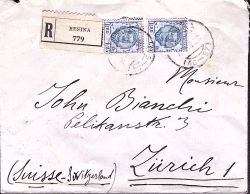 R
RESINA
779
Monsieur
John Bianchi
Pelikanstr. 3
Zürich 1
(Suisse-Switzerland)